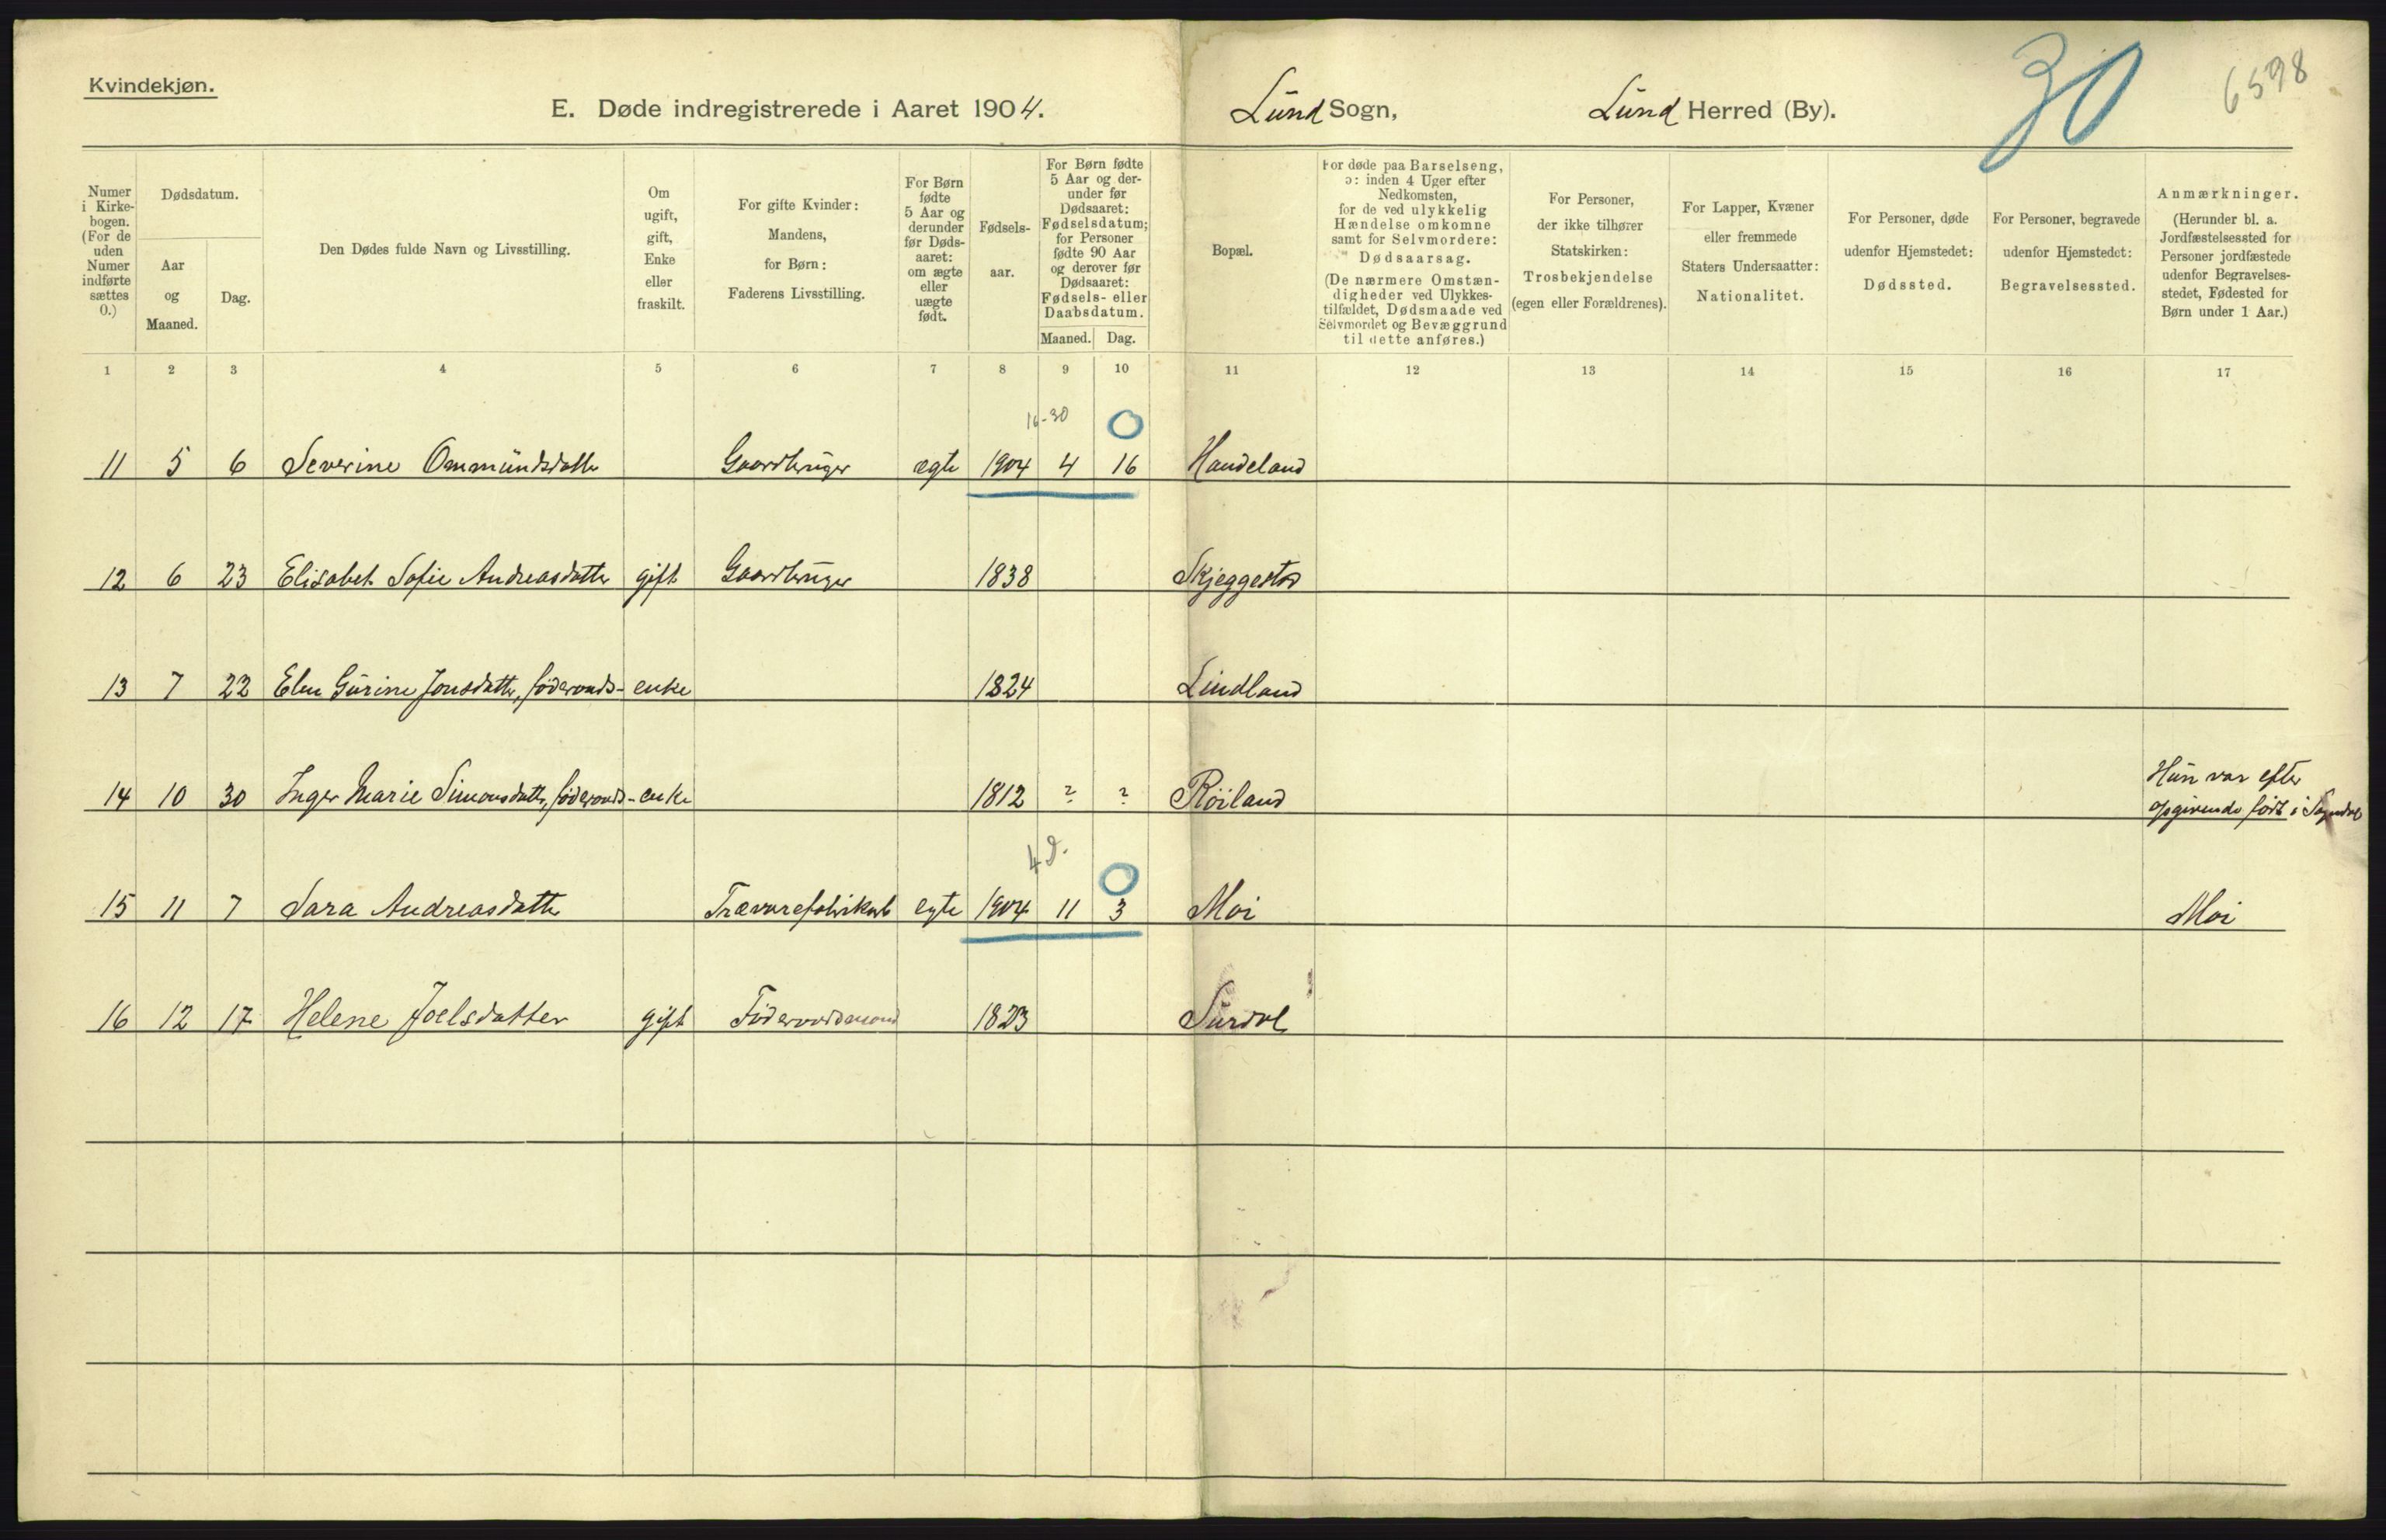 Kvindekjøn.
E. Døde indregistrerede i Aaret 1904.
Lund Sogn,
Lund Herred (By).
30
6598
Numer i Kirkebogen. (For de uden Numer indførte sættes 0.)
Dødsdatum.
Aar og Maaned.
Dag.
Den Dødes fulde Navn og Livsstilling.
Om ugift, gift, Enke eller fraskilt.
For gifte Kvinder: Mandens, for Børn: Faderens Livsstilling.
For Børn fødte 5 Aar og derunder før Dødsaaret: om ægte eller uægte født.
Fødselsaar.
For Børn fødte 5 Aar og derunder før Dødsaaret: Fødselsdatum; for Personer fødte 90 Aar og derover før Dødsaaret: Fødsels- eller Daabsdatum.
Maaned. Dag.
Bopæl.
For døde paa Barselseng, ɔ: inden 4 Uger efter Nedkomsten, for de ved ulykkelig Hændelse omkomne samt for Selvmordere: Dødsaarsag. (De nærmere Omstændigheder ved Ulykkestilfældet, Dødsmaade ved Selvmordet og Bevæggrund til dette anføres.)
For Personer, der ikke tilhører Statskirken: Trosbekjendelse (egen eller Forældrenes).
For Lapper, Kvæner eller fremmede Staters Undersaatter: Nationalitet.
For Personer, døde udenfor Hjemstedet: Dødssted.
For Personer, begravede udenfor Hjemstedet: Begravelsessted.
Anmærkninger. (Herunder bl. a. Jordfæstelsessted for Personer jordfæstede udenfor Begravelsesstedet, Fødested for Børn under 1 Aar.)
1 2 3 4 5 6 7 8 9 10 11 12 13 14 15 16 17
16-30 0
11 5 6 Severine Ommündsdatter Gaardbrüger ægte 1904 4 16 Haudeland
12 6 23 Elisabet Sofie Andreasdatter gift Gaardbrüger 1838 Skjeggestad
13 7 22 Elen Gürine Jonsdatter, föderaads- enke 1824 Lindland
14 10 30 Inger Marie Simonsdatter, föderaads- enke 1812 ? ? Röiland Hün var efter
opgivende født i Sogndal
4 d. 0
15 11 7 Sara Andreasdatter Trævarefabrikant egte 1904 11 3 Moi Moi
16 12 17 Helene Joelsdatter gift Föderaadsmand 1823 Sürdal